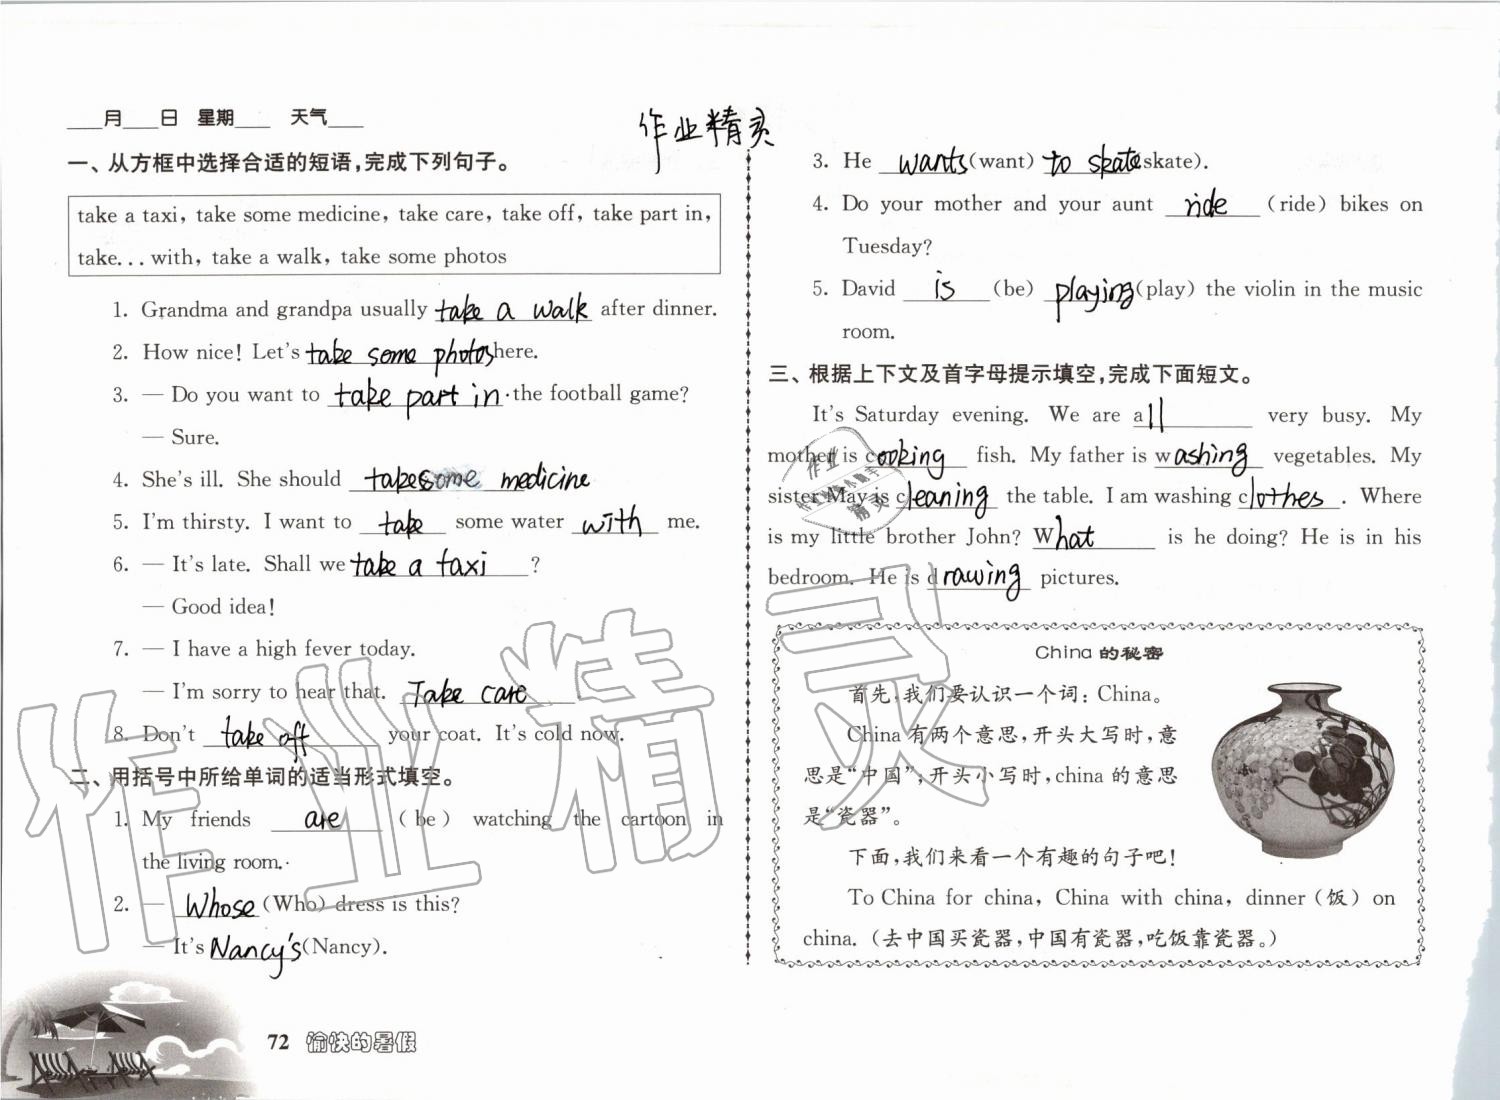 ___月___日 星期___ 天气___
作业精灵
一、从方框中选择合适的短语,完成下列句子。
take a taxi, take some medicine, take care, take off, take part in,
take...with, take a walk, take some photos
1. Grandma and grandpa usually take a walk after dinner.
2. How nice! Let's take some photos here.
3. — Do you want to take part in the football game?
— Sure.
4. She's ill. She should take some medicine
5. I'm thirsty. I want to take some water with me.
6. — It's late. Shall we take a taxi ?
— Good idea!
7. — I have a high fever today.
— I'm sorry to hear that. Take care
8. Don't take off your coat. It's cold now.
二、用括号中所给单词的适当形式填空。
1. My friends are (be) watching the cartoon in
the living room.
2. — Whose (Who) dress is this?
— It's Nancy's (Nancy).
72 愉快的暑假
3. He wants (want) to skate (skate).
4. Do your mother and your aunt ride (ride) bikes on
Tuesday?
5. David is (be) playing (play) the violin in the music
room.
三、根据上下文及首字母提示填空,完成下面短文。
It's Saturday evening. We are all very busy. My
mother is cooking fish. My father is washing vegetables. My
sister May is cleaning the table. I am washing clothes. Where
is my little brother John? What is he doing? He is in his
bedroom. He is drawing pictures.
China的秘密
首先,我们要认识一个词:China。
China有两个意思,开头大写时,意
思是“中国”;开头小写时,china的意思
是“瓷器”。
下面,我们来看一个有趣的句子吧!
To China for china, China with china, dinner(饭) on
china.(去中国买瓷器,中国有瓷器,吃饭靠瓷器。)
作业精灵